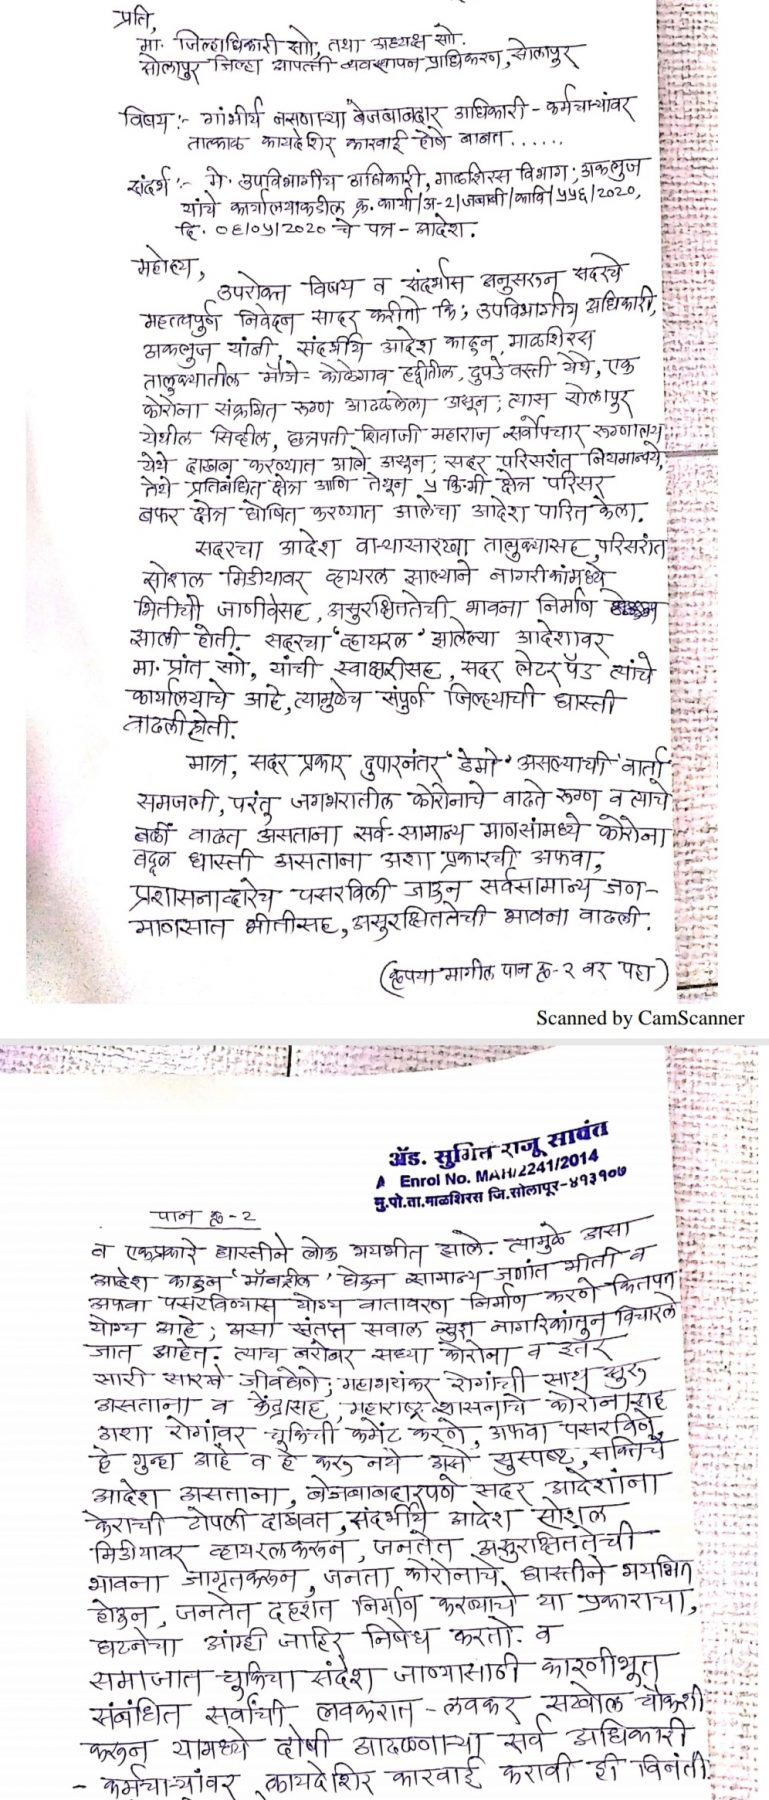 प्रति,
मा. जिल्हाधिकारी सो, तथा अध्यक्ष सो.
सोलापुर जिल्हा आपत्ती व्यवस्थापन प्राधिकरण, सोलापुर
विषय :- गांभीर्य नसणाऱ्या बेजबाबदार अधिकारी - कर्मचाऱ्यांवर
तात्काळ कायदेशिर कारवाई होणे बाबत......
संदर्भ :- मे. उपविभागीय अधिकारी, माळशिरस विभाग, अकलुज
यांचे कार्यालयाकडील क्र. कार्या/अ-2/जबाबी/कावि/५५६/2020,
दि. ०६/०५/2020 चे पत्र - आदेश.
महोदय,
उपरोक्त विषय व संदर्भास अनुसरून सदरचे
महत्वपुर्ण निवेदन सादर करीतो कि, उपविभागीय अधिकारी,
अकलुज यांनी, संदर्भीय आदेश काढुन, माळशिरस
तालुक्यातील मौजे - कोळेगाव हद्दीतील, दुपडे वस्ती येथे, एक
कोरोना संक्रमित रूग्ण आढळलेला असून, त्यास सोलापुर
येथील सिव्हील, छत्रपती शिवाजी महाराज सर्वोपचार रूग्णालय
येथे दाखल करण्यात आले असून, सदर परिसरांत नियमान्वये,
तेथे प्रतिबंधित क्षेत्र आणि तेथून ५ कि.मी क्षेत्र परिसर
बफर क्षेत्र घोषित करण्यात आलेचा आदेश पारित केला.
सदरचा आदेश वाऱ्यासारखा तालुक्यासह, परिसरांत
सोशल मिडीयावर व्हायरल झाल्याने नागरीकांमध्ये
भितीची जाणीवेसह, असुरक्षिततेची भावना निर्माण
झाली होती. सदरचा 'व्हायरल' झालेल्या आदेशावर
मा. प्रांत सो, यांची स्वाक्षरीसह, सदर लेटर पॅड त्यांचे
कार्यालयाचे आहे, त्यामुळेच संपुर्ण जिल्ह्याची धास्ती
वाढली होती.
मात्र, सदर प्रकार दुपारनंतर 'डेमो' असल्याची वार्ता
समजली, परंतु जगभरातील कोरोनाचे वाढते रूग्ण व त्याचे
बळी वाढत असताना सर्व-सामान्य माणसांमध्ये कोरोना
बद्दल धास्ती असताना अशा प्रकारची अफवा,
प्रशासनाद्वारेच पसरविली जाऊन सर्वसामान्य जन-
मानसात भीतीसह, असुरक्षिततेची भावना वाढली.
(कृपया मागील पान क्र-२ वर पहा)
Scanned by CamScanner
ॲड. सुमित राजू सावंत
A Enrol No. MAH/2241/2014
मु.पो.ता.माळशिरस जि.सोलापूर-४१३१०७
पान क्र-2
व एकप्रकारे धास्तीने लोक भयभीत झाले. त्यामुळे असा
आदेश काढुन 'मॉकड्रील' घेऊन सामान्य जणांत भीती व
अफवा पसरविण्यास योग्य वातावरण निर्माण करणे कितपत
योग्य आहे; असा संतप्त सवाल सुज्ञ नागरिकांतुन विचारले
जात आहेत. त्याच बरोबर सध्या कोरोना व इतर
सारी सारखे जीवघेणे, महाभयंकर रोगांची साथ सुरू
असताना व केंद्रासह, महाराष्ट्र शासनाचे कोरोनासह
अशा रोगांवर चुकिची कमेंट करणे, अफवा पसरविणे,
हे गुन्हा आहे व हे करू नये असे सुस्पष्ट, सक्तिचे
आदेश असताना, बेजबाबदारपणे सदर आदेशांना
केराची टोपली दाखवत, संदर्भीय आदेश सोशल
मिडीयावर व्हायरल करून, जनतेत असुरक्षिततेची
भावना जागृत करून, जनता कोरोनाचे धास्तीने भयभित
होऊन, जनतेत दहशत निर्माण करण्याचे या प्रकाराचा,
घटनेचा आंम्ही जाहिर निषेध करतो. व
समाजात चुकिचा संदेश जाण्यासाठी कारणीभूत
संबंधित सर्वांची लवकरात - लवकर सखोल चौकशी
करून यामध्ये दोषी आढळणाऱ्या सर्व अधिकारी
- कर्मचाऱ्यांवर कायदेशिर कारवाई करावी ही विनंती.